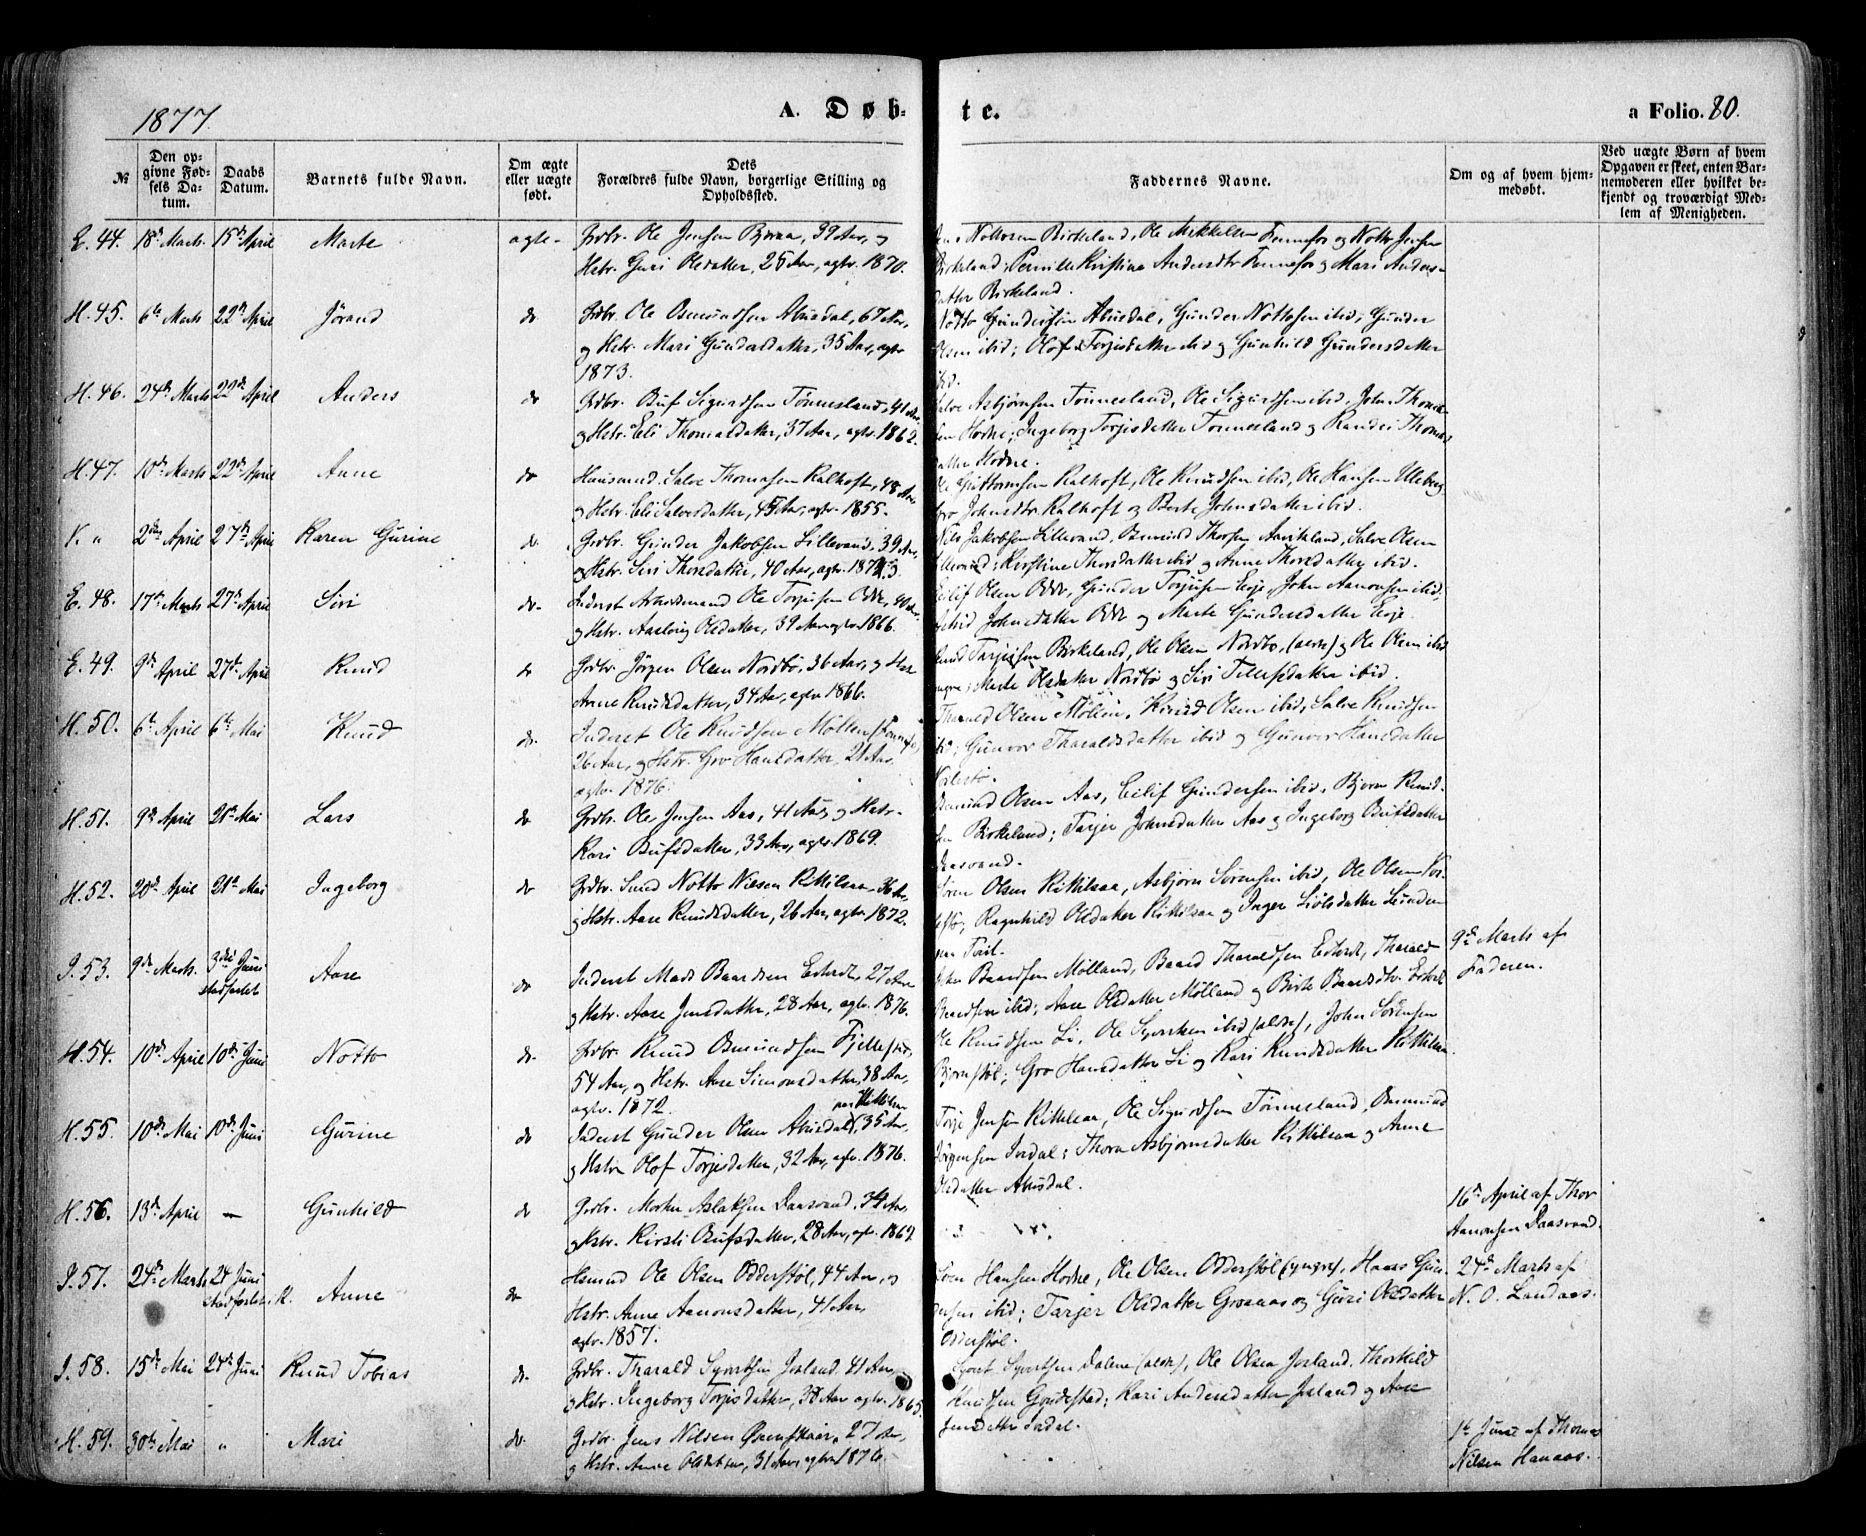 1877.
A. Døb-
te.
a Folio. 80.
№
Den op-
givne Fød-
sels Da-
tum.
Daabs
Datum.
Barnets fulde Navn.
Om ægte
eller uægte
født.
Dets
Forældres fulde Navn, borgerlige Stilling og
Opholdssted.
Faddernes Navne.
Om og af hvem hjem-
medøbt.
Ved uægte Børn af hvem
Opgaven er skeet, enten Bar-
nemoderen eller hvilket be-
kjendt og troværdigt Med-
lem af Menigheden.
E. 44. 18de Marts. 15de April Marte ægte- Grdbr. Ole Jensen 39 Aar, og
Hstr. Guri Olsdatter, 25 Aar, agtv. 1870.
Birkeland, Ole Mikkelsen Fennefos og Notto Jensen
Birkeland; Pernille Kristine Andersdtr. Fennefos og Mari Anders-
datter Birkeland.
H. 45. 6te Marts 22de April Jørand do Grdbr. Ole Osmundsen Abusdal, 67 Aar,
og Hstr. Mari Gundersdatter, 35 Aar, agtv
1873.
Notto Gundersen Abusdal, Gunder Nottosen ibid, Gunder
Olsen ibid; Olof Torjisdatter ibid og Gunhild Gundersdatter
ibid.
H. 46. 24de Marts 22de April Anders do Grdbr. Buf Sigurdsen Tønnesland, 41 Aar,
og Hstr. Eli Thomasdatter, 37 Aar, agtv. 1862.
Salve Asbjørnsen Tønnesland, Ole Sigurdsen ibid, John Thomas-
sen Hodne; Ingeborg Torjisdatter Tønnesland og Randei Thomas-
datter Hodne.
H. 47. 10de Marts 22de April Anne do Huusmand Salve Thomasen Kalhoft, 48 Aar
og Hstr. Eli Salvesdatter, 45 Aar, agtv. 1855.
Ole Guttormsen Kalhoft, Ole Knudsen ibid, Ole Hansen Uleberg,
Gro Johnsdtr. Kalhoft og Berte Johnsdatter ibid.
V. " 2den April 27de April Karen Gurine do. Grdbr. Gunder Jakobsen Lillevand, 39 Aar,
og Hstr. Siri Thorsdatter, 40 Aar, agtv.
Nils Jakobsen Lillevand, Osmund Thorsen Aavikland, Salve Olsen
Lillevand; Kirstine Thorsdatter ibid og Anne Thorsdatter ibid.
E. 48. 17de Marts 27de April Siri do. Inderst Ole Torjusen Odde, 40 Aar,
og Hstr. Aaslaug Olsdatter, 39 Aar, agtv. 1866.
Eilif Olsen Odde, Gunder Torjusen Eeje, John Aanonsen ibid,
Johnsdatter Odde og Marte Gundersdatter Eeje.
E. 49. 9de April 27de April Knud do Grdbr. Jørgen Olsen Nordbø, 36 Aar, og Hstr
Anne Knudsdatter, 34 Aar, agtv 1866.
Knud Tarjeisen Birkeland, Ole Olsen Nordbø, (ældre) og Ole Olsen ibid
yngre; Marte Olsdatter Nordbø og Siri Tellefsdatter ibid.
H. 50. 6te April 6te Mai Knud do. Inderst Ole Knudsen Møllen (Fennefos),
26 Aar, og Hstr. Gro Hansdatter, 21 Aar,
agtv. 1876.
Tharald Olsen Møllen, Knud Olsen ibid, Salve Knudsen
ibid; Gunvor Tharaldsdatter ibid og Gunvor Hansdatter
H. 51. 9de April 21de Mai Lars do Grdbr. Ole Jensen Aas, 41 Aar, og Hstr.
Kari Bufsdatter, 33 Aar, agtv. 1869.
Osmund Olsen Aas, Eilif Gundersen ibid, Bjorn Knud-
sen Birkeland; Tarjer Johnsdatter Aas og Ingeborg Bufsdatter
Daasvand.
H. 52. 20de April 21de Mai Ingeborg do Grdbr. Smed Notto Nielsen Kittilsaa 36 Aar,
og Hstr. Aase Knudsdatter, 26 Aar, agtv. 1872.
Søren Olsen Kittilsaa, Asbjørn Sørensen ibid, Ole Olsen
Ragnhild Olsdatter Kittilsaa og Inger Liølsdatter
I. 53. 9de Marts. 3die Juni
stadfæstet Aase do Inderst Mads Baardsen Estvedt, 27 Aar
og Hstr. Aase Jensdatter, 28 Aar, agtv. 1876.
John Baardsen Mølland, Baard Tharaldsen Estvedt, Tharald
Baardsen ibid; Aase Olsdatter Mølland og Birte Baardsdtr. Estvedt
9de Marts af
Faderen.
H. 54. 10de April 10de Juni Notto do. Grdbr. Knud Osmundsen Fjellestad,
54 Aar, og Hstr. Aase Simonsdatter, 38 Aar,
agtv. 1872.
Ole Knudsen Li, Ole Syvertsen ibid (ældre), John Sørensen
Bjørnstøl; Gro Hansdatter Li og Kari Knudsdatter Kittilsaa.
H. 55. 10de Mai 10de Juni Gurine do Inderst Gunder Olsen Abusdal (paa Kittilsaa), 35 Aar,
og Hstr Olof Torjisdatter, 32 Aar, agtv. 1876.
Torje Jensen Kittilsaa, Ole Sigurdsen Tønnesland, Osmund
Jørgensen Iredal; Thora Asbjørnsdatter Kittilsaa og Anne
Olsdatter Abusdal.
H. 56. 13de April — Gunhild do Grdbr. Aslaksen Daasvand, 34 Aar,
og Hstr. Kirsti Bufsdatter, 28 Aar, agtv. 1869.
16de April af Thor
Aanonsen Daasvand.
I. 57. 24de Marts 24 Juni
stadfæstet k. Anne do Hsmnd Ole Olsen Odderstøl, 44 Aar, og
Hstr. Anne Aanonsdatter, 41 Aar
agtv. 1857.
Hansen Hodne, Ole Olsen Odderstøl (yngre), Haaes Gun-
dersen ibid; Tarjer Olsdatter Groaas og Guri Olsdatter
Odderstøl.
24de Marts af
N. O. Landaas.
I. 58. 15de Mai 24de Juni Knud Tobias do. Grdbr. Tharald Syvertsen Josland 41 Aar
og Hstr. Ingeborg Torjisdatter, 38 Aar agtv. 1865.
Syvert Syvertsen Dalene (ældre), Ole Olsen Josland, Thorkild
Knutsen Gyvlestad; Kari Andersdatter Josland og Aase
Jensdatter Dødal.
H. 59. 30te Mai " Mari do. Grdbr. Jens Nilsen 27 Aar,
og Hstr. Anne Olsdatter, 31 Aar, agtv 1876.
1te Juni af Thomas
Nilsen Hanaas.